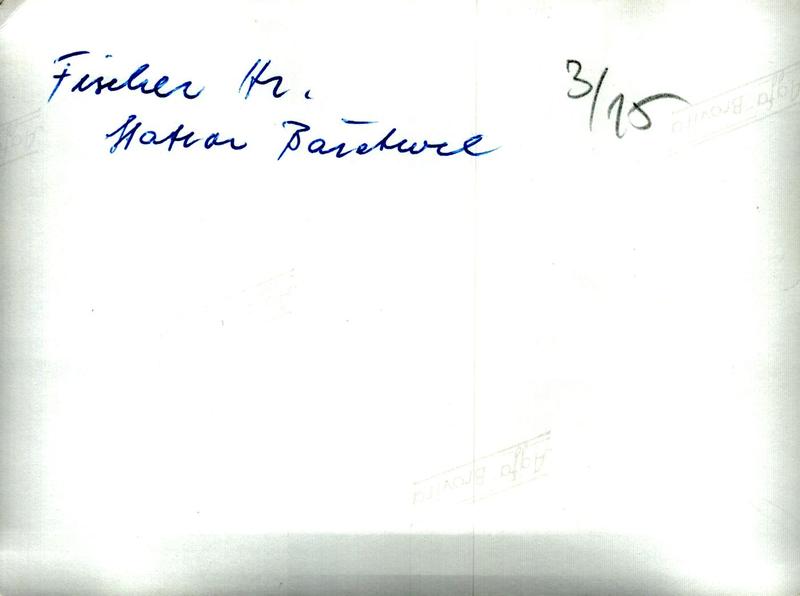 Fischer Hr.
3/15
Station Bäretswil
Agfa Brovira
Agfa Brovira